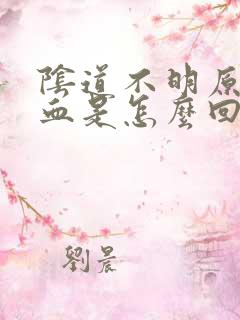 陰道不明原
血是怎麼回
劉晨